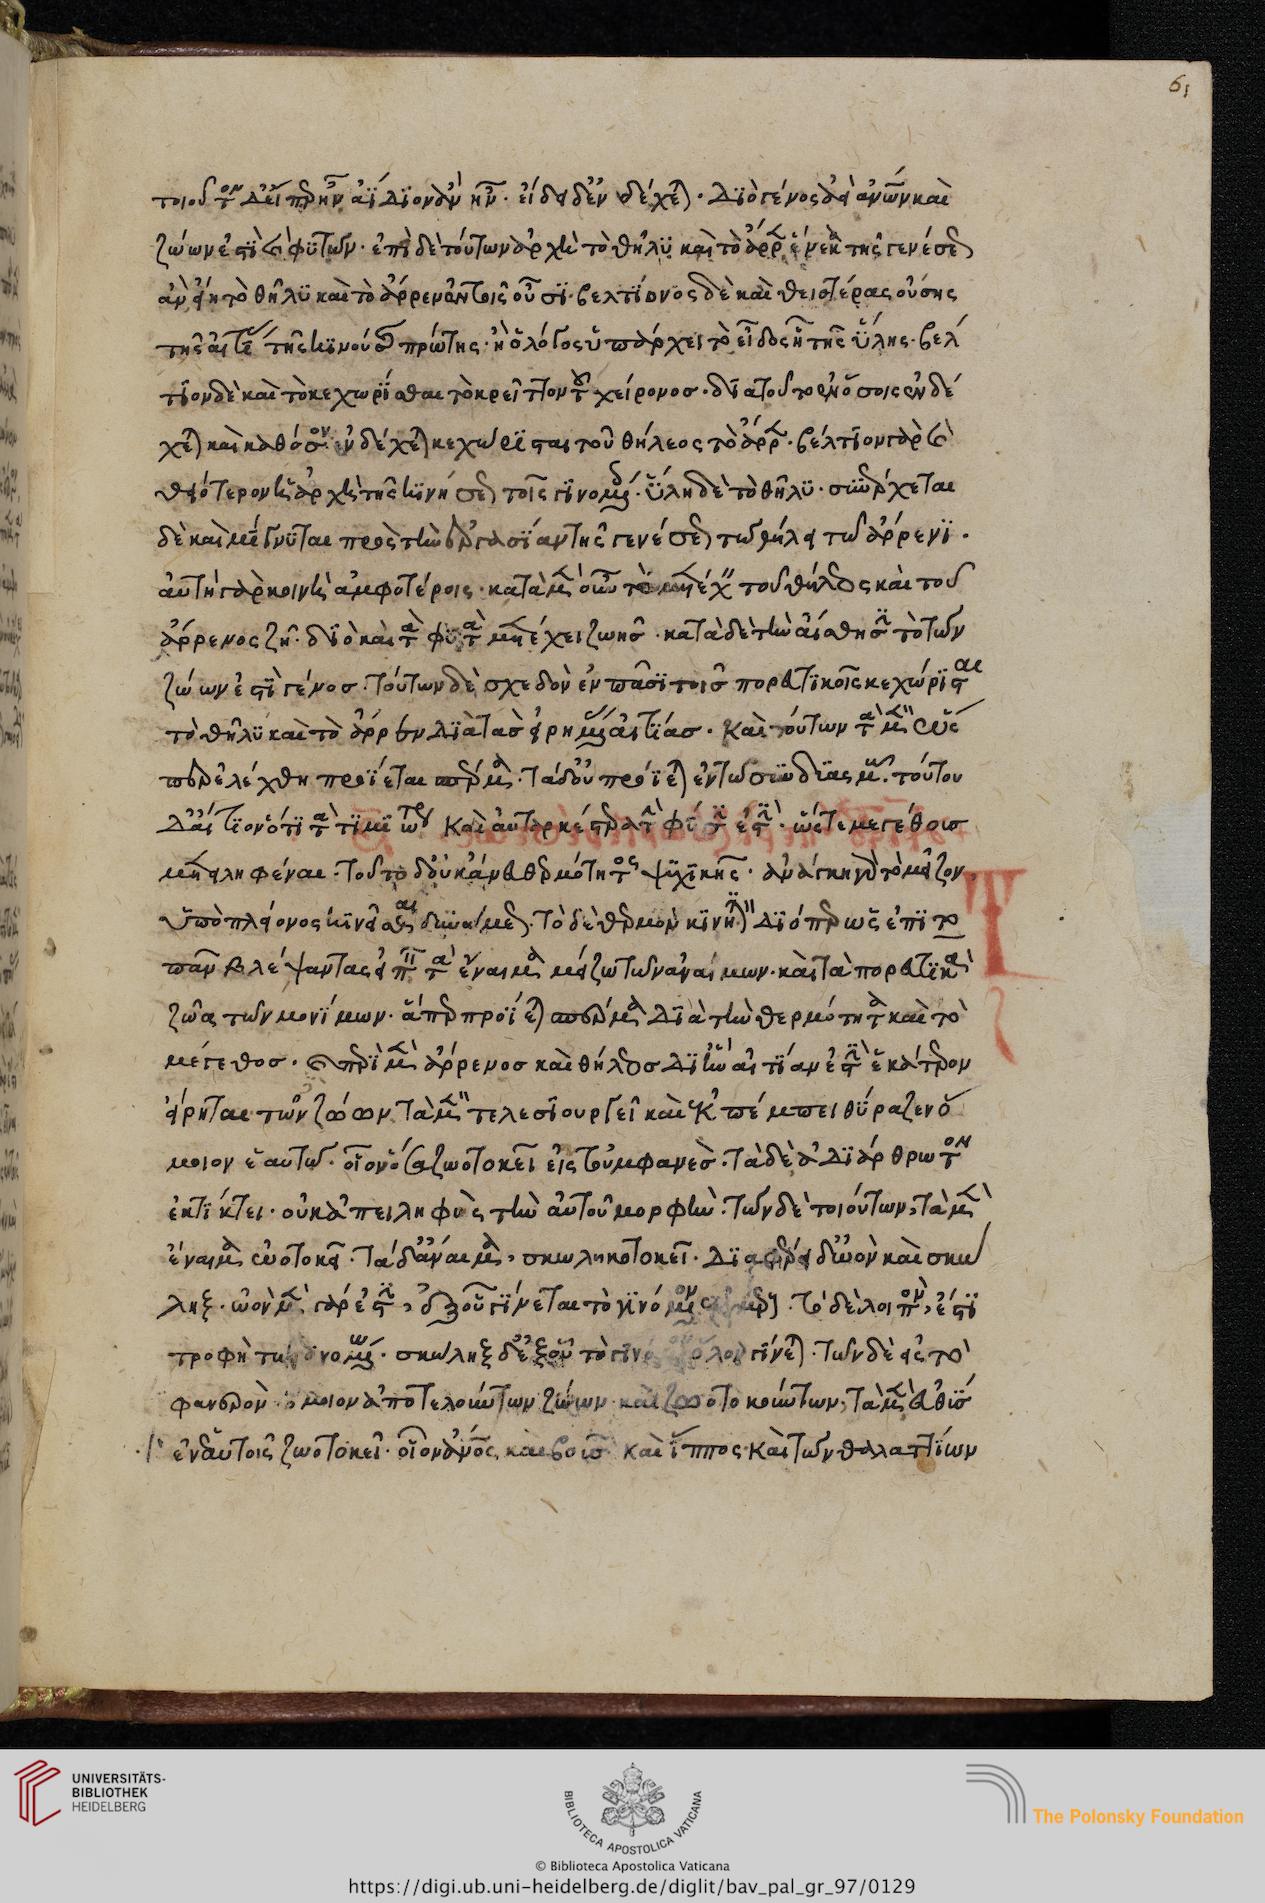 61
τοιούτον. ἀεὶ περ ἦν ἀΐδιον δ' ἂν ἦν. εἴδει δ' ἐνδέχεται. διὸ γένος ἀεὶ ἀνθρώπων καὶ
ζώων ἐστὶ καὶ φυτῶν. ἐπεὶ δὲ τούτων ἀρχὴ τὸ θῆλυ καὶ τὸ ἄρρεν ἕνεκα τῆς γενέσεως
ἂν εἴη τὸ θῆλυ καὶ τὸ ἄρρεν ἐν τοῖς οὖσι. βελτίονος δὲ καὶ θειοτέρας οὔσης
τῆς αἰτίας τῆς κινούσης πρώτης. ᾗ ὁ λόγος ὑπάρχει τὸ εἶδος ἢ τῆς ὕλης. βέλ
τιον δὲ καὶ τὸ κεχωρίσθαι τὸ κρεῖττον τοῦ χείρονος. διὰ τοῦτο ἐν ὅσοις ἐνδέ
χεται καὶ καθόσον ἐνδέχεται κεχώρισται τοῦ θήλεος τὸ ἄρρεν. βέλτιον γὰρ καὶ
θειότερον ἡ ἀρχὴ τῆς κινήσεως τοῖς γινομένοις. ὕλη δὲ τὸ θῆλυ. συνέρχεται
δὲ καὶ μίγνυται πρὸς τὴν ἐργασίαν τῆς γενέσεως τῷ θήλει τὸ ἄρρενι.
αὐτὴ γὰρ κοινὴ ἀμφοτέροις. κατὰ μὲν οὖν τὸ μετέχειν τοῦ θήλεος καὶ τοῦ
ἄρρενος ζῇ. διὸ καὶ τὰ φυτὰ μετέχει ζωῆς. κατὰ δὲ τὴν αἴσθησιν τὸ τῶν
ζώων ἐστὶ γένος. τούτων δὲ σχεδὸν ἐν πᾶσι τοῖς πορευτικοῖς κεχώρισται
τὸ θῆλυ καὶ τὸ ἄρρεν διὰ τὰς εἰρημένας αἰτίας. καὶ τούτων τὰ μὲν ὥσ
περ ἐλέχθη προΐεται σπέρμα. τὰ δ' οὐ προΐεται ἐν τῷ συνδυασμῷ. τούτου
δ' αἴτιον ὅτι τὰ τιμιώτερα καὶ αὐταρκέστερα τὴν φύσιν ἐστὶν. ὥστε μεγέθους
μετειληφέναι. τοῦτο δ' οὐκ ἄνευ θερμότητος ψυχικῆς. ἀνάγκη γὰρ τὸ μεῖζον
ὑπὸ πλείονος κινεῖσθαι δυνάμεως. τὸ δὲ θερμὸν κινητικόν. διόπερ ὡς ἐπὶ τὸ
πᾶν βλέψαντας εἰπεῖν τὰ ἔναιμα μείζω τῶν ἀναίμων. καὶ τὰ πορευτικὰ
ζῷα τῶν μονίμων. ἅπερ προΐεται σπέρμα διὰ τὴν θερμότητα καὶ τὸ
μέγεθος. περὶ μὲν ἄρρενος καὶ θήλεος δι' ἣν αἰτίαν ἐστὶν ἑκάτερον
εἴρηται τῶν ζῴων. τὰ μὲν τελεσιουργεῖ καὶ ἐκπέμπει θύραζε ὅ
μοιον ἑαυτῷ. οἷον ὅσα ζωοτοκεῖ εἰς τοὐμφανές. τὰ δὲ ἀδιάρθρωτον
ἐκτίκτει. οὐκ ἀπειληφὸς τὴν αὐτοῦ μορφὴν. τῶν δὲ τοιούτων, τὰ μὲν
ἔναιμα ᾠοτοκεῖ. τὰ δ' ἄναιμα, σκωληκοτοκεῖ. διαφέρει δ' ᾠὸν καὶ σκώ
ληξ. ᾠὸν μὲν γάρ ἐστιν, ἐξ οὗ γίνεται τὸ γινόμενον ἐκ μέρους. τὸ δὲ λοιπὸν, ἐστὶ
τροφὴ τῷ γινομένῳ. σκώληξ δ' ἐξ οὗ τὸ γινόμενον ὅλον γίνεται. τῶν δὲ εἰς τὸ
φανερὸν ὅμοιον ἀποτελούντων ζῷον καὶ ζῳοτοκούντων, τὰ μὲν εὐθὺς
ἐν ἑαυτοῖς ζωοτοκεῖ. οἷον ἄνθρωπος, καὶ βοῦς καὶ ἵππος καὶ τῶν θαλαττίων
UNIVERSITÄTS-
BIBLIOTHEK
HEIDELBERG
BIBLIOTECA APOSTOLICA VATICANA
The Polonsky Foundation
© Biblioteca Apostolica Vaticana
https://digi.ub.uni-heidelberg.de/diglit/bav_pal_gr_97/0129